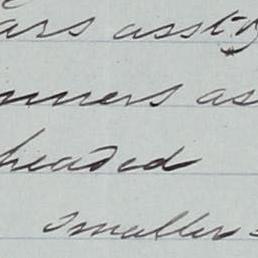 ars asst
nners as
headed
smaller